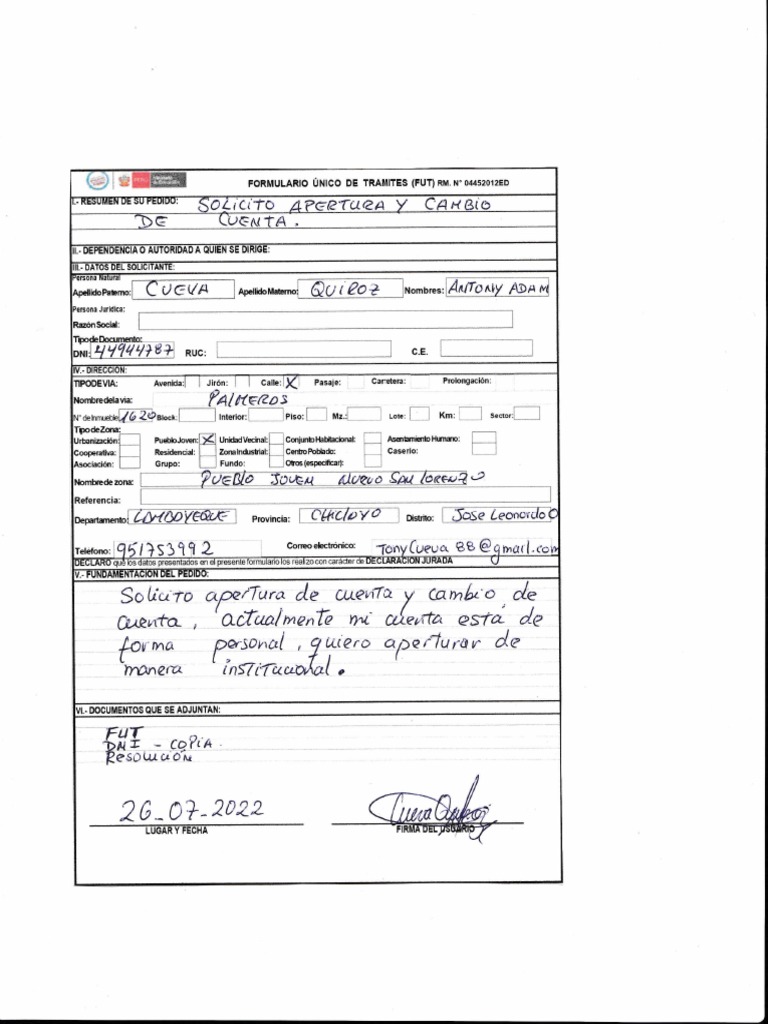 PERÚ
FORMULARIO ÚNICO DE TRAMITES (FUT) RM. N° 04452012ED
I.- RESUMEN DE SU PEDIDO: SOLICITO APERTURA Y CAMBIO
DE CUENTA.
II.- DEPENDENCIA O AUTORIDAD A QUIEN SE DIRIGE:
III.- DATOS DEL SOLICITANTE:
Persona Natural
Apellido Paterno: CUEVA Apellido Materno: QUIROZ Nombres: ANTONY ADAM
Persona Juridica:
Razón Social:
Tipo de Documento:
DNI: 44944787 RUC: C.E.
IV.- DIRECCION:
TIPO DE VIA: Avenida: Jirón: Calle: X Pasaje: Carretera: Prolongación:
Nombre de la via: PALMEROS
N° de Inmueble 1620 Block: Interior: Piso: Mz.: Lote: Km: Sector:
Tipo de Zona:
Urbanización: Pueblo Joven: X Unidad Vecinal: Conjunto Habitacional: Asentamiento Humano:
Cooperativa: Residencial: Zona Industrial: Centro Poblado: Caserio:
Asociación: Grupo: Fundo: Otros (especificar):
Nombre de zona: PUEBLO JOVEM NUEVO SAN LORENZO
Referencia:
Departamento: LAMBAYEQUE Provincia: CHICLAYO Distrito: Jose Leonardo O
Telefono: 951753992 Correo electrónico: TonyCueva88@gmail.com
DECLARO que los datos presentados en el presente formulario los realizo con carácter de DECLARACION JURADA
V.- FUNDAMENTACION DEL PEDIDO:
Solicito apertura de cuenta y cambio de
cuenta, actualmente mi cuenta está de
forma personal, quiero aperturar de
manera institucional.
VI.- DOCUMENTOS QUE SE ADJUNTAN:
FUT
DNI - COPIA
Resolución
26-07-2022
LUGAR Y FECHA FIRMA DEL USUARIO